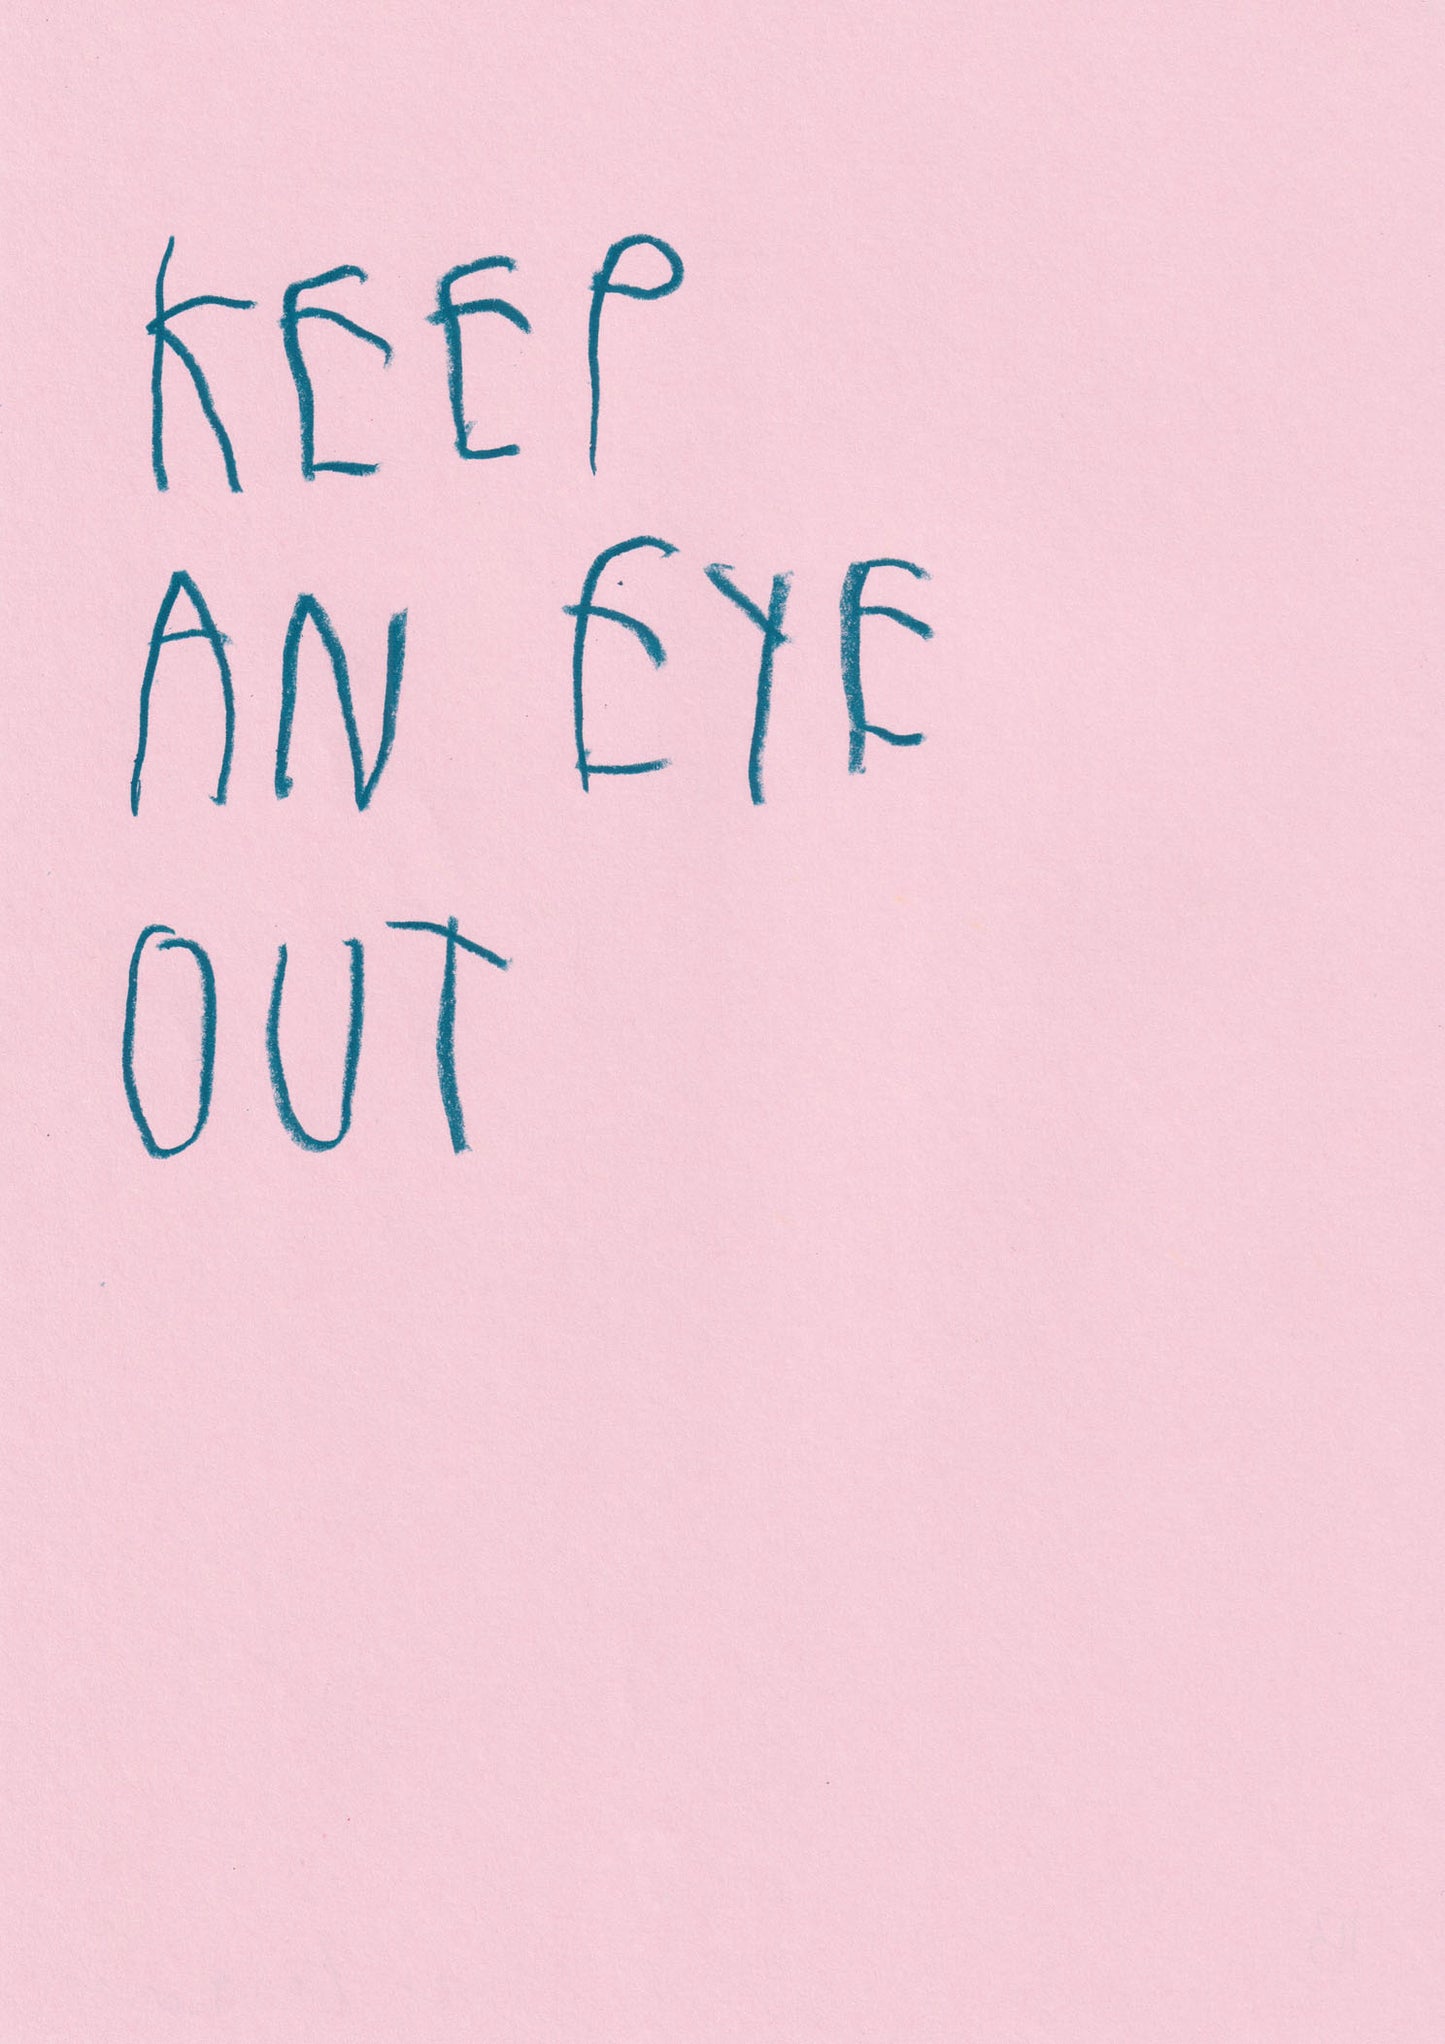 KEEP
AN EYE
OUT